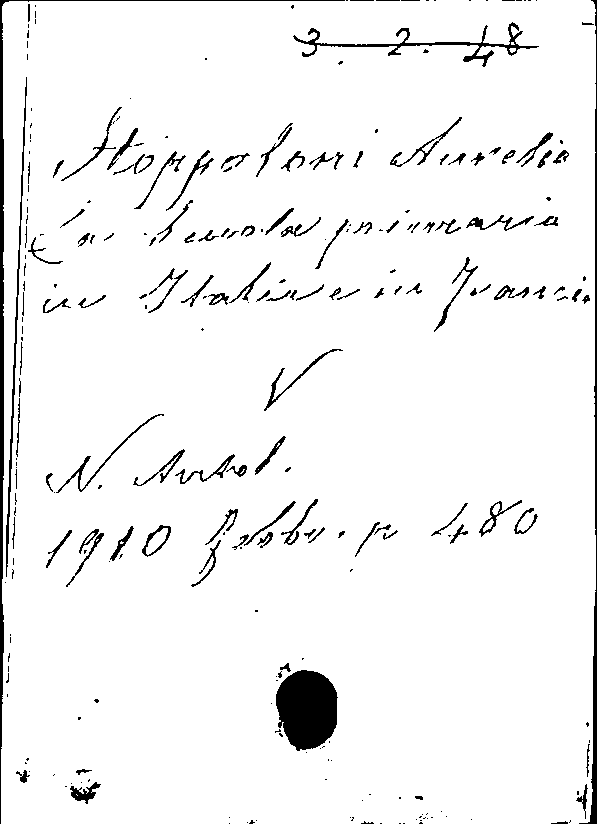 3. 2. 48
Stoppoloni Aurelio
La Scuola primaria
in Italia e in Francia
V
N. Antol.
1910 febbr. p 480